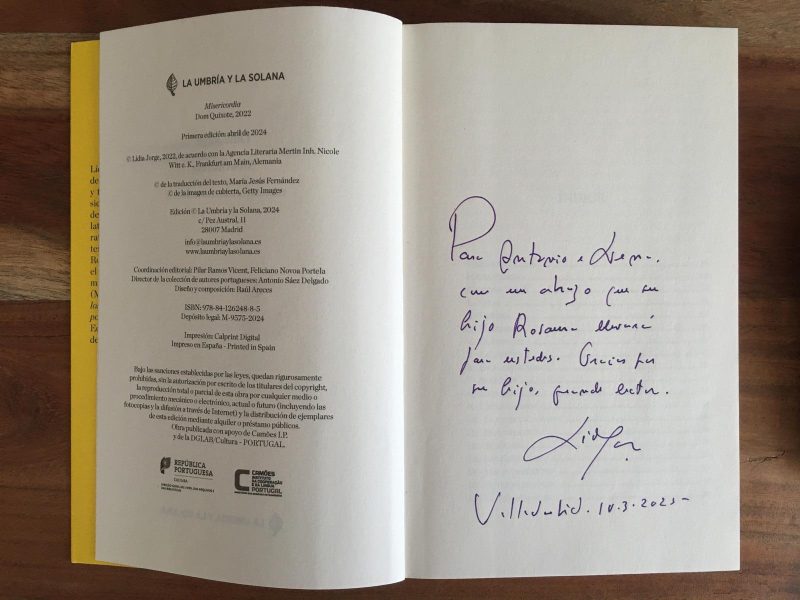 LA UMBRÍA Y LA SOLANA
Misericordia
Dom Quixote, 2022
Primera edición: abril de 2024
© Lídia Jorge, 2022, de acuerdo con la Agencia Literaria Mertin Inh. Nicole
Witt e. K., Frankfurt am Main, Alemania
© de la traducción del texto, María Jesús Fernández
© de la imagen de cubierta, Getty Images
Edición © La Umbría y la Solana, 2024
c/ Pez Austral, 11
28007 Madrid
info@laumbriaylasolana.es
www.laumbriaylasolana.es
Coordinación editorial: Pilar Ramos Vicent, Feliciano Novoa Portela
Director de la colección de autores portugueses: Antonio Sáez Delgado
Diseño y composición: Raúl Areces
ISBN: 978-84-126248-8-5
Depósito legal: M-9575-2024
Impresión: Calprint Digital
Impreso en España - Printed in Spain
Bajo las sanciones establecidas por las leyes, quedan rigurosamente
prohibidas, sin la autorización por escrito de los titulares del copyright,
la reproducción total o parcial de esta obra por cualquier medio o
procedimiento mecánico o electrónico, actual o futuro (incluyendo las
fotocopias y la difusión a través de Internet) y la distribución de ejemplares
de esta edición mediante alquiler o préstamo públicos.
Obra publicada con apoyo de Camões I.P.
y de la DGLAB/Cultura - PORTUGAL.
REPÚBLICA
PORTUGUESA
CULTURA
CAMÕES
INSTITUTO
DA COOPERAÇÃO
E DA LÍNGUA
PORTUGAL
Para Antonio e
con un abrazo que su
hijo
para ustedes. Gracias por
su hijo, grande lector.
Valladolid. 10.3.2025